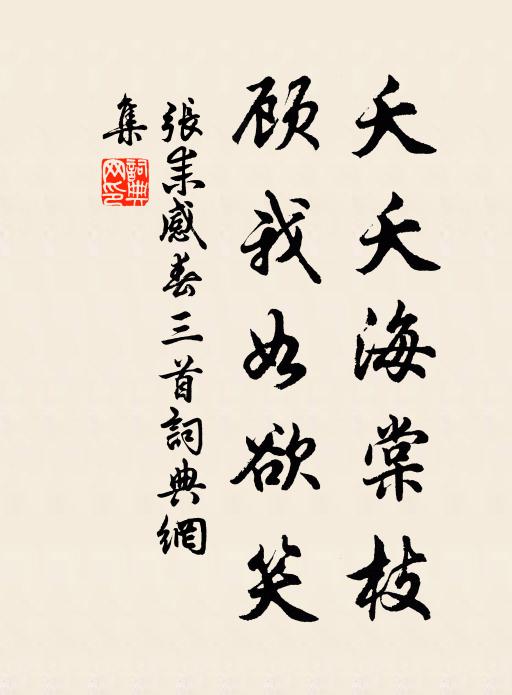 夭夭海棠枝
顾我如欲笑
張耒感春三首詞典網
集
詞典網印